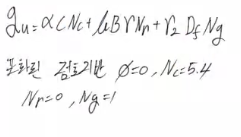 qu = αCNc + βBγNr + γ2 Df Nq
포화된 점토지반 ∅=0, Nc=5.4
Nr=0, Nq=1